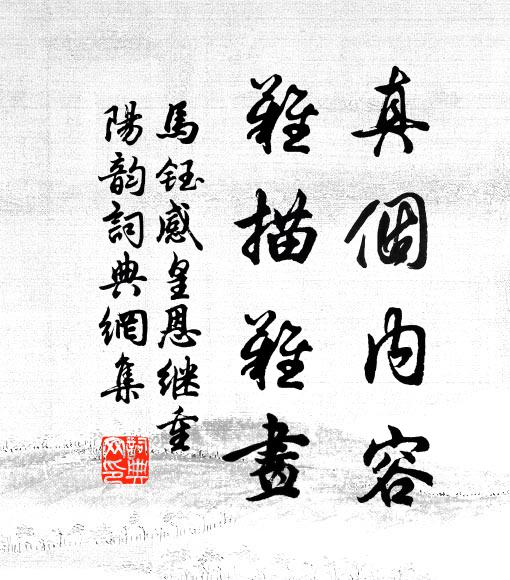 真個內容
難描難畫
馬鈺感皇恩繼重
陽韵詞典網集